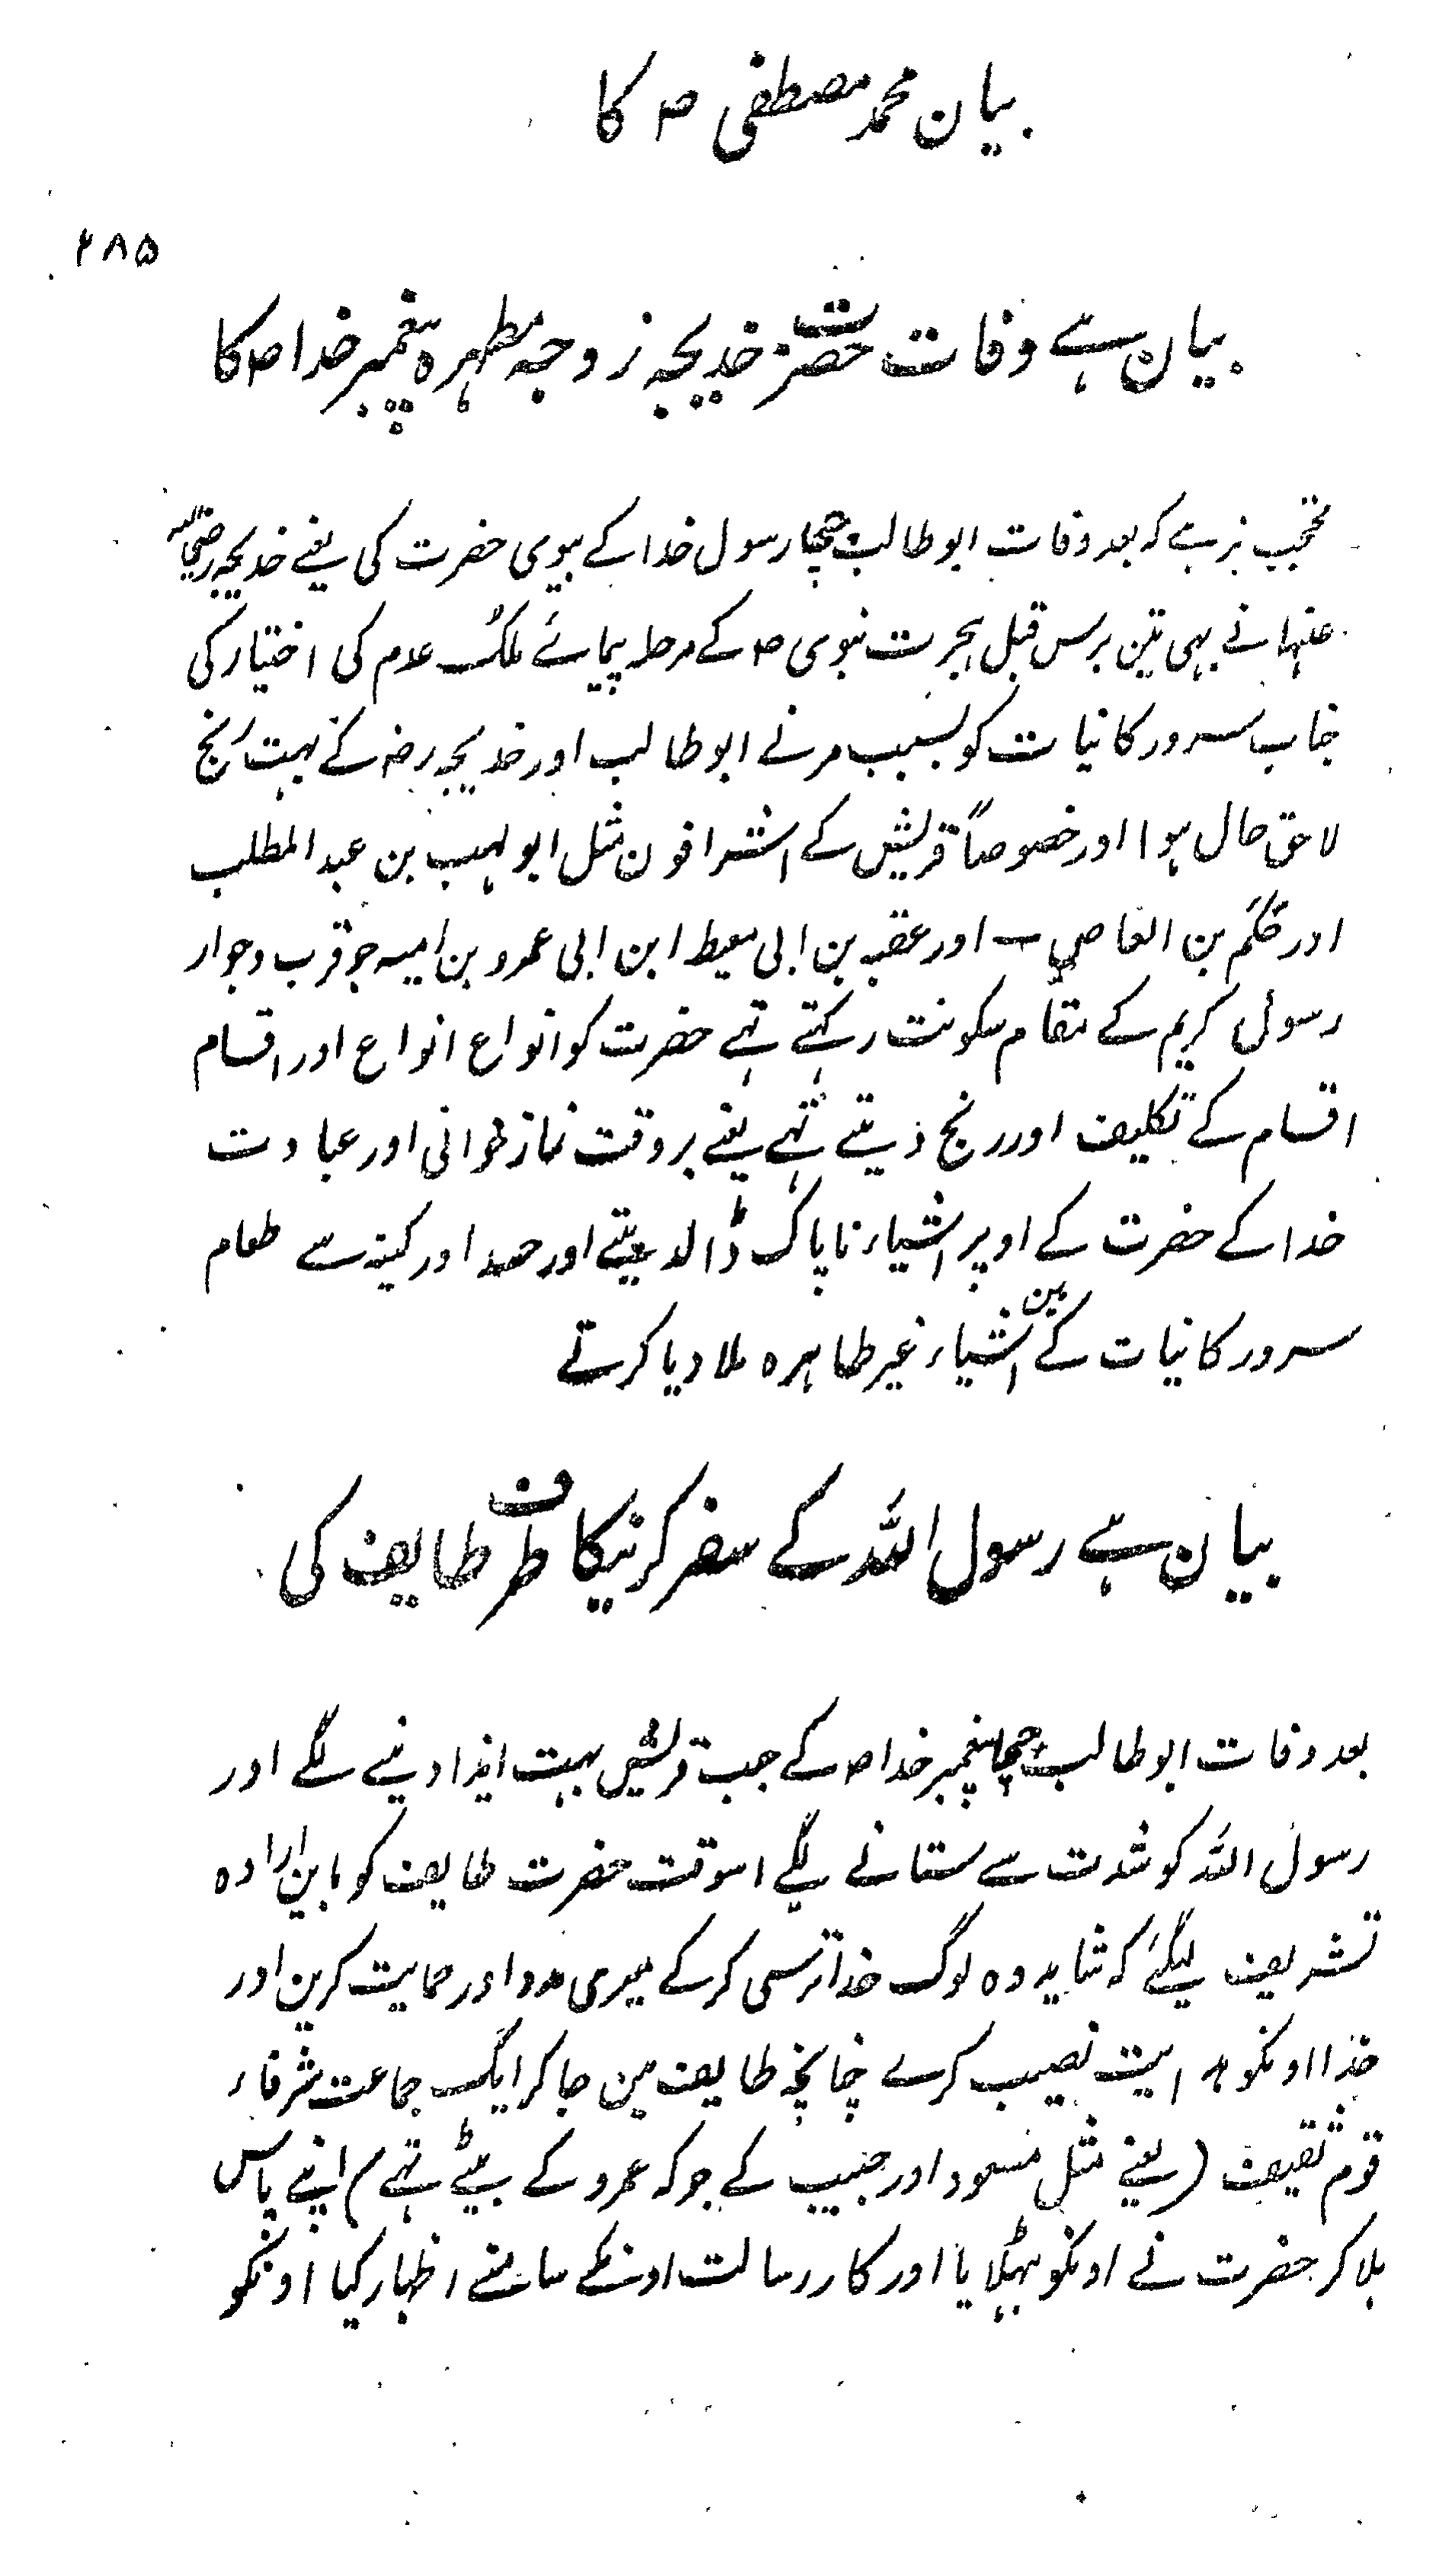 بیان محمد مصطفی ص کا
۲۸۵
بیان ہے وفات حضرت خدیجہ زوجہ مطہرہ پیغمبر خدا ص کا
نہ رہے کہ بعد وفات ابو طالب چچا رسول خدا کے بیوی حضرت کی یعنے خدیجہ رضی اللہ
عنہا نے بہی تین برس قبل ہجرت نبوی ص کے مرحلہ پیمائے ملک عدم کی اختیار کی
جناب سرور کائنات کو بسبب مرنے ابو طالب اور خدیجہ رضہ کے بہت رنج
لاحق حال ہوا اور خصوصاً قریش کے اشرافون مثل ابو لہب بن عبد المطلب
اور حکم بن العاصی اور عقبہ بن ابی معیط ابن ابی عمرو بن امیہ جو قرب وجوار
رسول کریم کے مقام سکونت رکہتے تہے حضرت کو انواع انواع اور اقسام
اقسام کے تکلیف اور رنج دیتے تہے یعنے بر وقت نماز خوانی اور عبادت
خدا کے حضرت کے اوپر اشیاء ناپاک ڈالدیتے اور حسد اور کینہ سے طعام
سرور کائنات کے مین اشیاء غیر طاہرہ ملا دیا کرتے
بیان ہے رسول اللہ کے سفر کرنیکا طرف طایف کی
بعد وفات ابو طالب چچا پیغمبر خدا ص کے جب قریش بہت ایذا دینے لگے اور
رسول اللہ کو شدت سے ستانے لگے اسوقت حضرت طایف کو باین ارادہ
تشریف لیگئے کہ شاید وہ لوگ خدا ترسی کرکے میری مدد اور حمایت کرین اور
خدا اونکو ہدایت نصیب کرے چنانچہ طایف مین جا کر ایک جماعت شرفاء
قوم ثقیف (یعنے مثل مسعود اور حبیب کے جو کہ عمرو کے بیٹے تہے) اپنے پاس
بلا کر حضرت نے اونکو بہٹلایا اور کار رسالت اونکے سامنے اظہار کیا اونکو